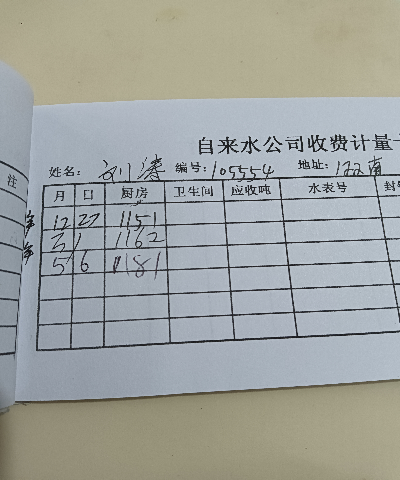 自来水公司收费计量
姓名: 刘涛 编号: 105554 地址: 122南
注
月 日 厨房 卫生间 应收吨 水表号 封
12 27 1151
3 1 1162
5 6 1181